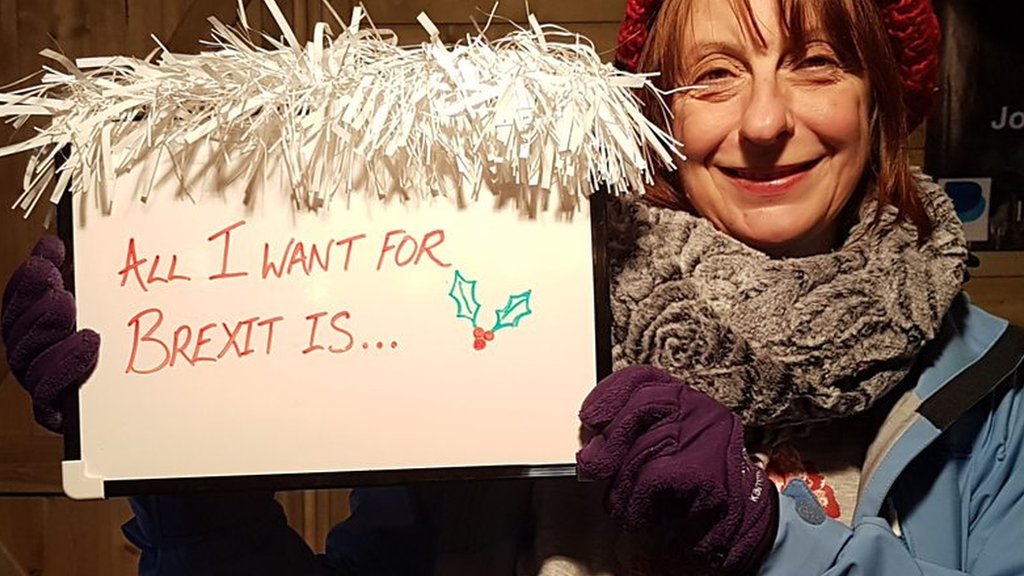 ALL I WANT FOR
BREXIT IS...
Jo